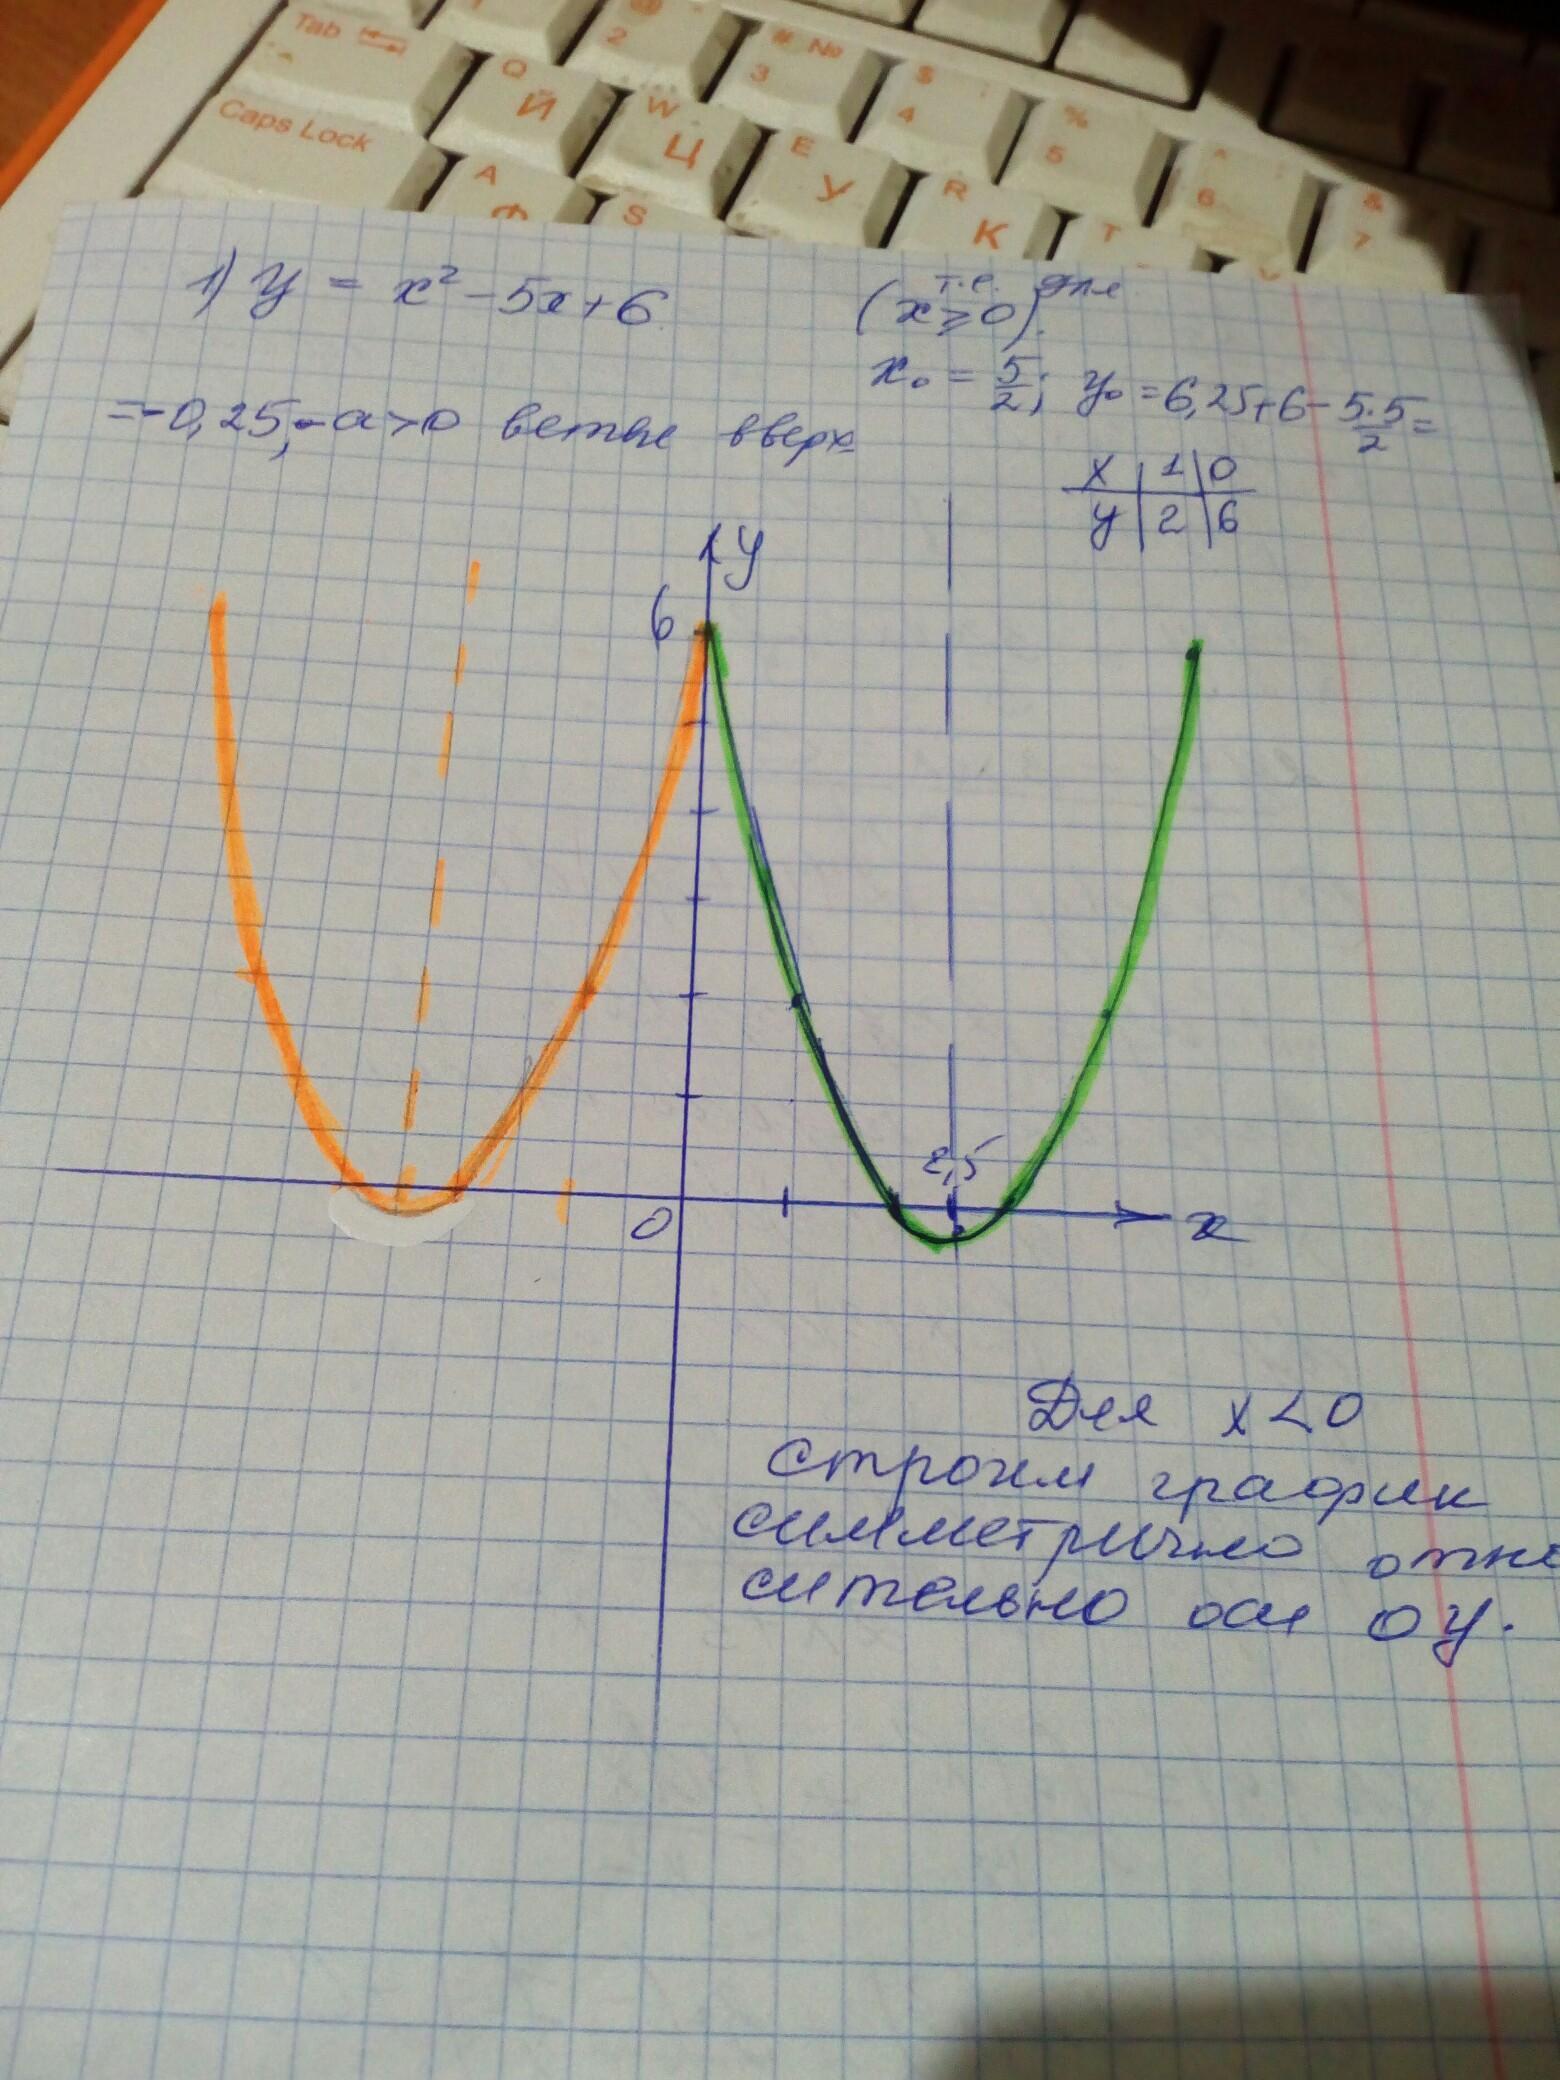 Tab
@
2
# №
3
$ ;
4
%
5
^ :
6
&
7
Caps Lock
Q Й
W Ц
E У
R К
T
A Ф
S
1) y = x² - 5x + 6 (т.е. для x ≥ 0).
x₀ = 5/2; y₀ = 6,25 + 6 - 5·5/2 =
= -0,25, - a > 0 ветви вверх
x | 1 | 0
y | 2 | 6
y
6
2,5
0
x
Для x < 0
строим график
симметрично отно
сительно оси OY.